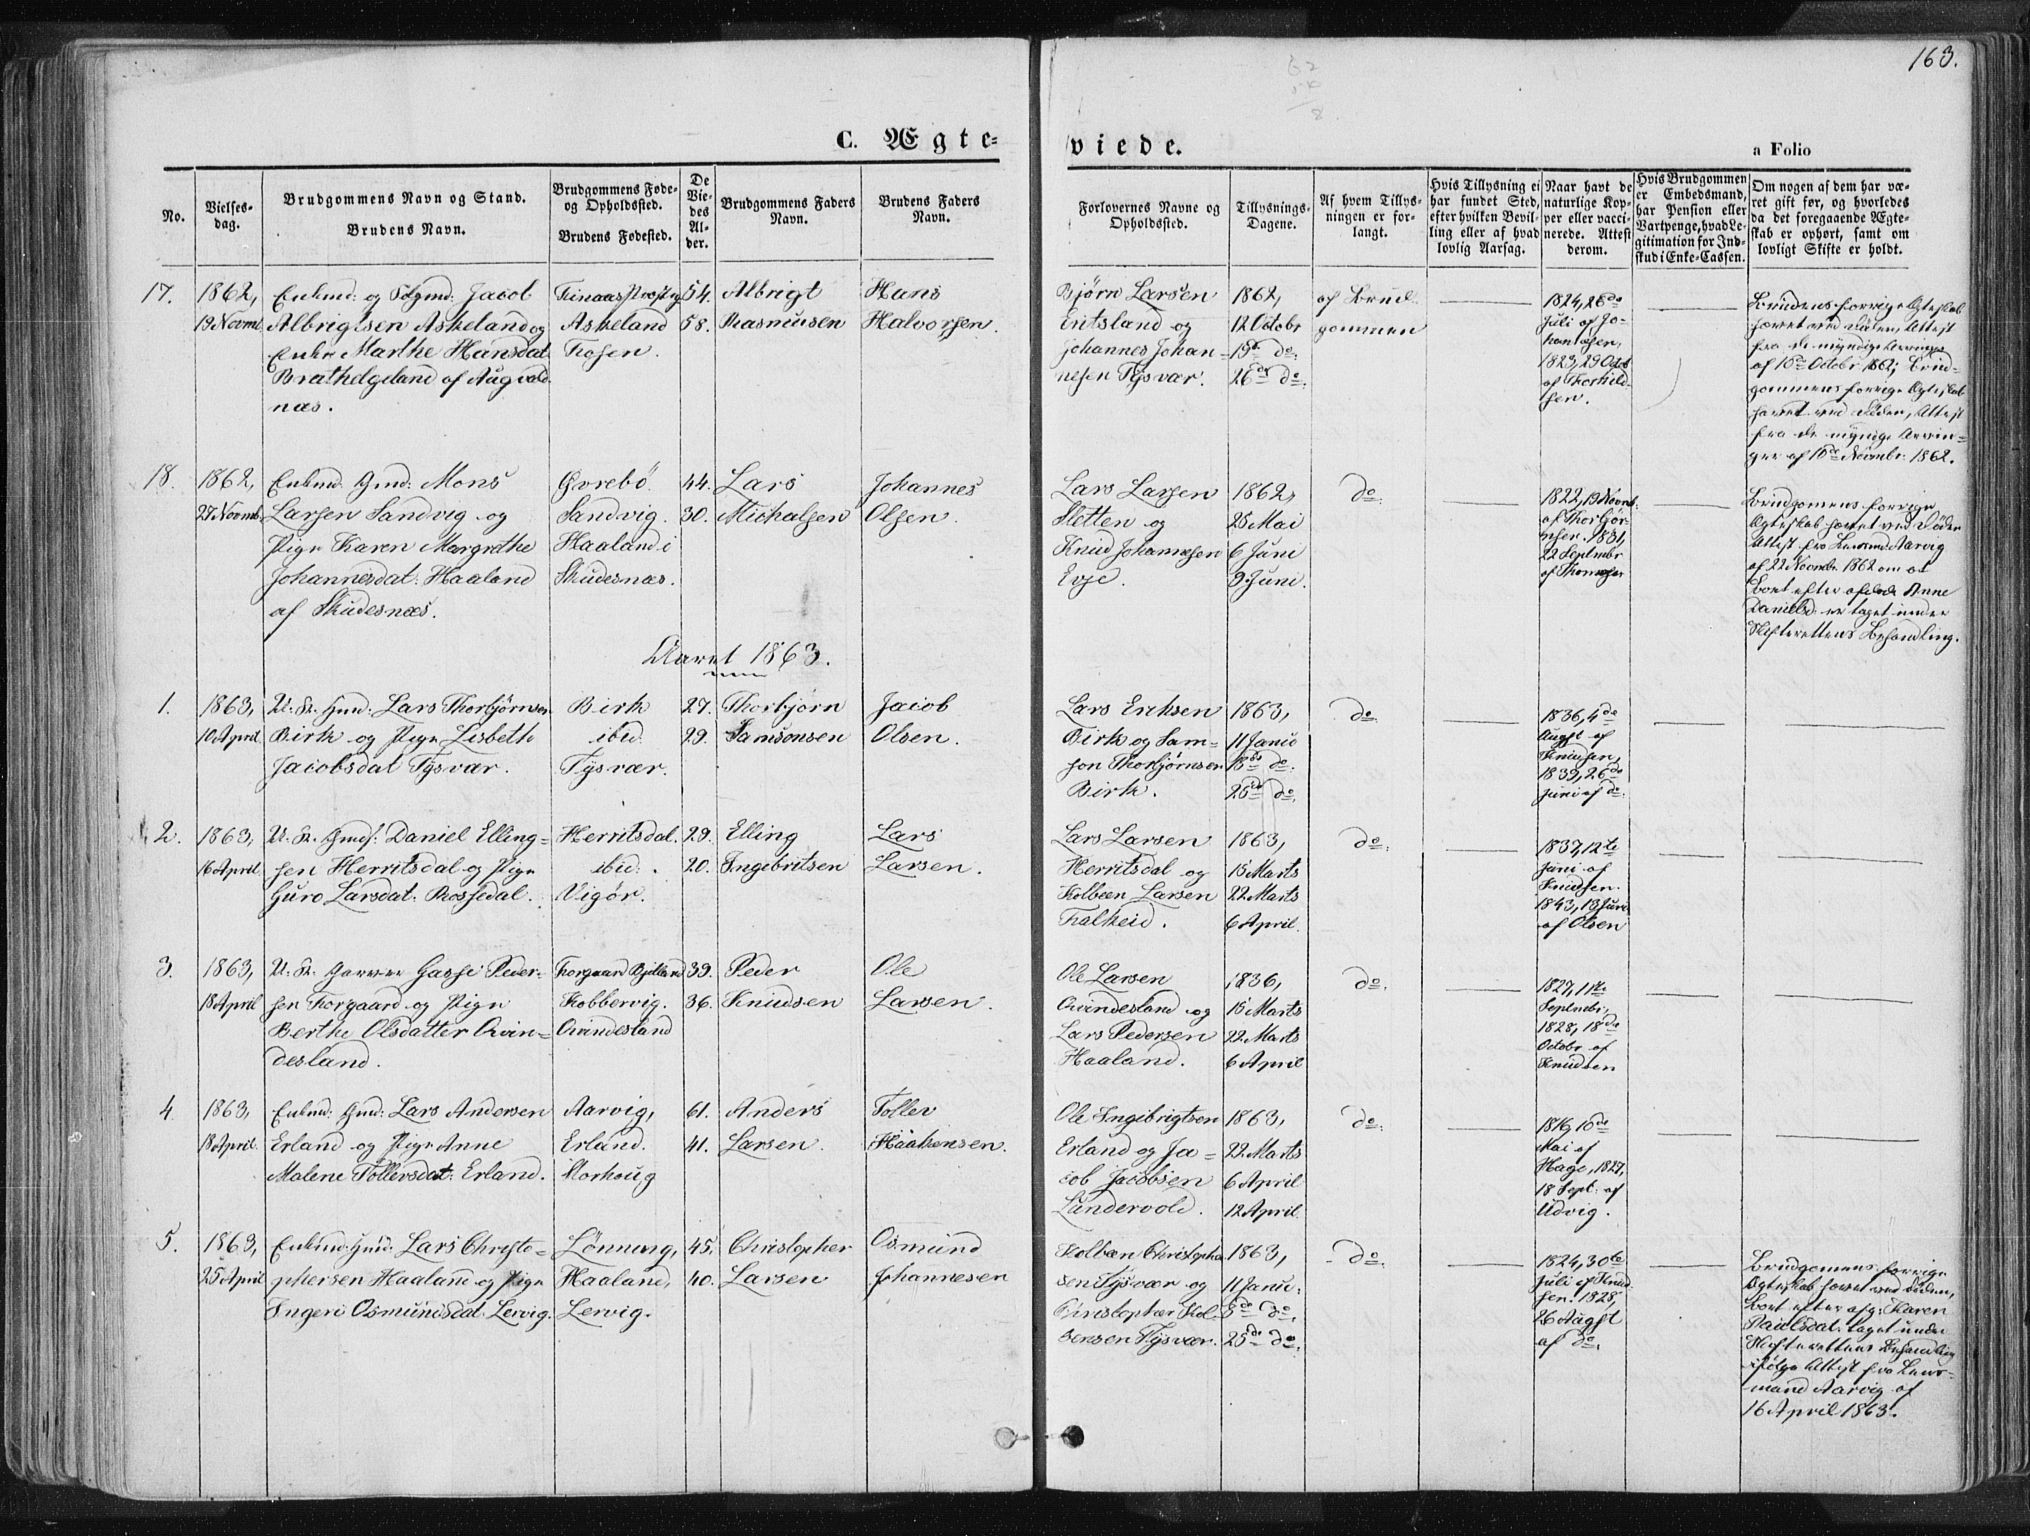 163.
C. Ægte-
viede.
a Folio
No.
Vielses-
dag.
Brudgommens Navn og Stand.
Brudens Navn.
Brudgommens Føde-
og Opholdssted.
Brudens Fødested.
De
Vie-
des
Al-
der.
Brudgommens Faders
Navn.
Brudens Faders
Navn.
Forlovernes Navne og
Opholdssted.
Tillysnings-
Dagene.
Af hvem Tillys-
ningen er for-
langt.
Hvis Tillysning ei
har fundet Sted,
efter hvilken Bevil-
ling eller af hvad
lovlig Aarsag.
Naar havt de
naturlige Kop-
per eller vacci-
nerede. Attest
derom.
Hvis Brudgommen
er Embedsmand,
har Pension eller
Vartpenge, hvad Le-
gitimation for Ind-
skud i Enke-Cassen.
Om nogen af dem har væ-
ret gift før, og hvorledes
da det foregaaende Ægte-
skab er ophørt, samt om
lovligt Skifte er holdt.
17.
1862,
19 Novmb
Enkmd: og Jacob
Albrigtsen Askeland og
Enke Marthe Hansdat.
Brathelgeland af Augvald
næs.
Askeland
54.
58.
Albrigt
Rasmussen
Hans
Halvorsen.
Bjørn Larsen
og
Johannes Johan-
nesen Tysvær.
1862,
12 Octobr
19de do:
26de do:
af Brud-
gommen
1824, 28de
Juli af Jo-
hannesen,
1823, 29 Octb
af Thorkild-
sen.
Brudens forrige Ægteskab
hævet ved Døden, Attest
fra de myndige Arvinger
af Octobr 1862; Brud-
gommens forrige Ægteskab
hævet ved Døden, Attest
fra de myndige Arvin-
ger af Novmbr. 1862.
18.
1862,
27 Novmb.
Enkmd. Gmd: Mons
Larsen Sandvig og
Pige Karen Margrethe
Johannesdat: Haaland
af Skudesnæs.
Øvrebö
Sandvig.
Haaland i
Skudesnæs.
44.
30.
Lars
Michalsen
Johannes
Olsen.
Lars Larsen
Sletten og
Knud Johannesen
Evje.
1862,
25 Mai
6 Juni
9 Juni.
do:
1822, 19 Novmb:
af Thorbjør-
nsen. 1831,
22 Septembr
af Thomsen
Brudgomens forrige
Ægteskab hævet ved Döden
Attest fra Lensmd: Aarvig
af 22 Novmbr. 1862 om at
Boet efter afdöde Anne
Danielsd: er taget under
Skifterettens Behandling.
Aaret 1863.
1.
1863,
10 April
U. K. Gmd: Lars Thorbjørnsen
Birk og Pige Lisbeth
Jacobsdat Tysvær.
Birk
ibid.
Tysvær.
27.
29.
Thorbjørn
Samsonsen
Jacob
Olsen.
Lars Erichsen
Birk og Sam-
son Thorbjørnsen
Birk.
1863,
11 Janu
18de do:
25de do:
do:
1836, 4de
Augst af
Knudsen,
1839, 26de
Juni af do:
2.
1863,
16 April
U. K. Gmds: Daniel Elling-
sen Herritsdal og Pige
Guro Larsdat: Rossedal.
Herritsdal.
ibid:
Vigør.
29.
20.
Elling
Ingebritsen
Lars
Larsen.
Lars Larsen
Herritsdal og
Kolbeen Larsen
Falkeid.
1863,
15 Marts
22 Marts
6 April.
do:
1837, 12te
Juni af
Knudsen.
1843, 13 Juni
af Olsen
3.
1863,
18 April
U. K. Garver Gasse Peder-
sen Torgaard og Pige
Berthe Olsdatter Qvin-
desland.
Kobbervig.
Qvindesland
39.
36.
Peder
Knudsen
Ole
Larsen.
Ole Larsen
Qvindesland og
Lars Pedersen
Haaland.
1836,
15 Marts
22 Marts
6 April
do:
1827, 11te
Septmbr,
1828, 18de
Octobr af
Knudsen
4
1863,
18 April
Enkmd: Gmd: Lars Andersen
Erland og Pige Anne
Malene Tollevsdat: Erland.
Aarvig,
Erland.
Storhoug
61.
41.
Anders
Larsen.
Tollev
Haakensen.
Ole Ingebrigtsen
Erland og Ja-
cob Jacobsen
Landervold.
1863,
22 Marts
6 April
12 April
do:
1816, 16de
Mai af
Hage, 1827,
18 Sept: af
Udvig.
5.
1863,
25 April
Enkmd Gmd: Lars Christo-
phersen Haaland og Pige
Ingeri Osmundsdat: Lervig.
Lönning,
Haaland,
Lervig.
45.
40.
Christopher
Larsen
Osmund
Johannesen
Kolbæn Christopher
sen Tysvær og
Christopher Kol-
bensen Tysvær.
1863,
11 Janu:
do:
25de do:
do:
1824, 30te
Juli af Knud-
sen. 1828,
26 Augst
af do.
Brudgomens forrige
Ægteskab hævet ved Döden,
Boet efter afg: Karen
Paulsdat: taget under
Skifterettens Behandling
ifølge Attest fra Lens-
mand Aarvig af
16 April 1863.